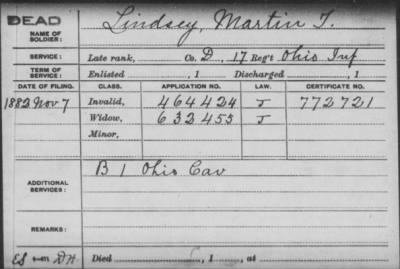 DEAD
NAME OF SOLDIER: Lindsey, Martin T.
SERVICE: Late rank, Co. D, 17 Reg't Ohio Inf
TERM OF SERVICE: Enlisted , 1 Discharged , 1
DATE OF FILING. CLASS. APPLICATION NO. LAW. CERTIFICATE NO.
1882 Nov 7 Invalid, 464424 J 772721
Widow, 632455 J
Minor,
ADDITIONAL SERVICES: B 1 Ohio Cav
REMARKS:
Died , 1 , at